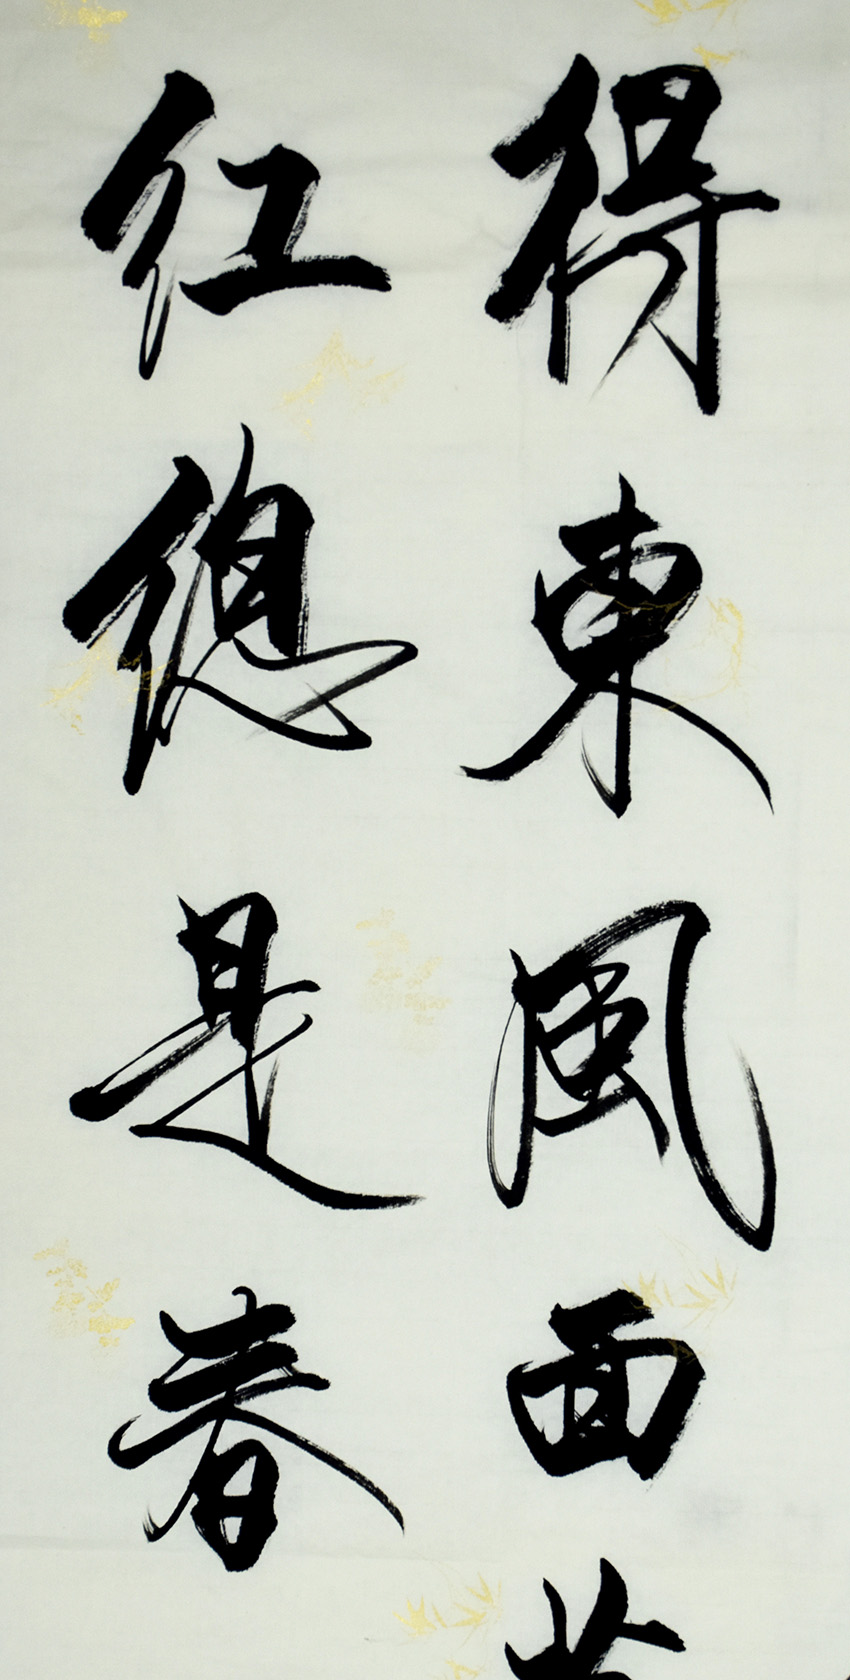 得東風面
紅總是春